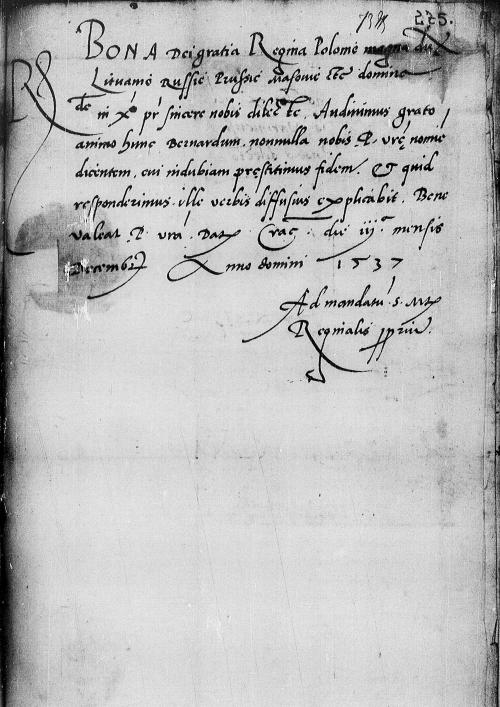 225.
BONA Dei gratia Regina Polonię magna dux
Lituanię Russię Prussię Masouię &c̃ domina
Rde in Xo pr̃ sincere nobis dilecte. Audiuimus grato
animo hunc Bernardum, nonnulla nobis P. vrę nomie
dicentem, cui indubiam pręstitimus fidem. Et quid
responderimus ille verbis diffusius explicabit. Bene
valeat P. vrã. Dat Crac̃. die iija mensis
Decembr Anno domini 1537
Ad mandatũ S. Mtis
Reginalis ppriũ.